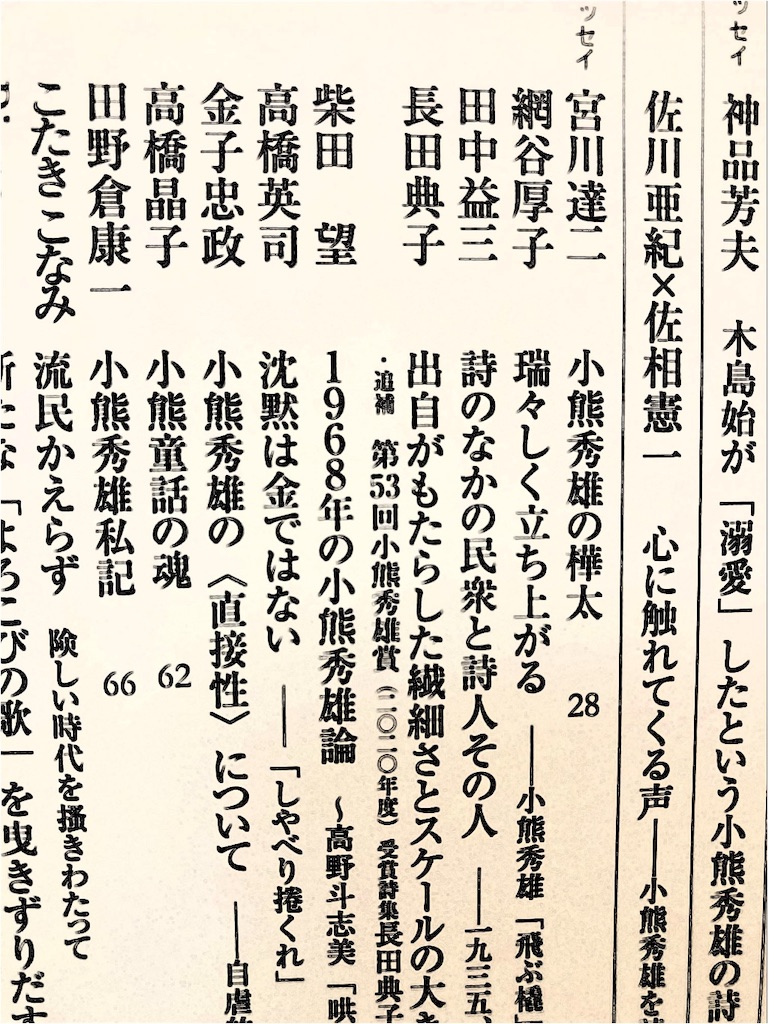 ッセイ
神品芳夫 木島始が「溺愛」したという小熊秀雄の詩
佐川亜紀×佐相憲一 心に触れてくる声――小熊秀雄を
ッセイ
宮川達二 小熊秀雄の樺太 28
網谷厚子 瑞々しく立ち上がる ――小熊秀雄「飛ぶ橇」
田中益三 詩のなかの民衆と詩人その人 ――一九三五、
長田典子 出自がもたらした繊細さとスケールの大き
・追補 第53回小熊秀雄賞(二〇二〇年度)受賞詩集長田典子
柴田 望 1968年の小熊秀雄論 ～高野斗志美「哄
高橋英司 沈黙は金ではない ――「しやべり捲くれ」
金子忠政 小熊秀雄の〈直接性〉について ――自虐的
高橋晶子 小熊童話の魂 62
田野倉康一 小熊秀雄私記 66
こたきこなみ 流民かえらず 険しい時代を掻きわたって
新たな「よろこびの歌」を曳きずりだす